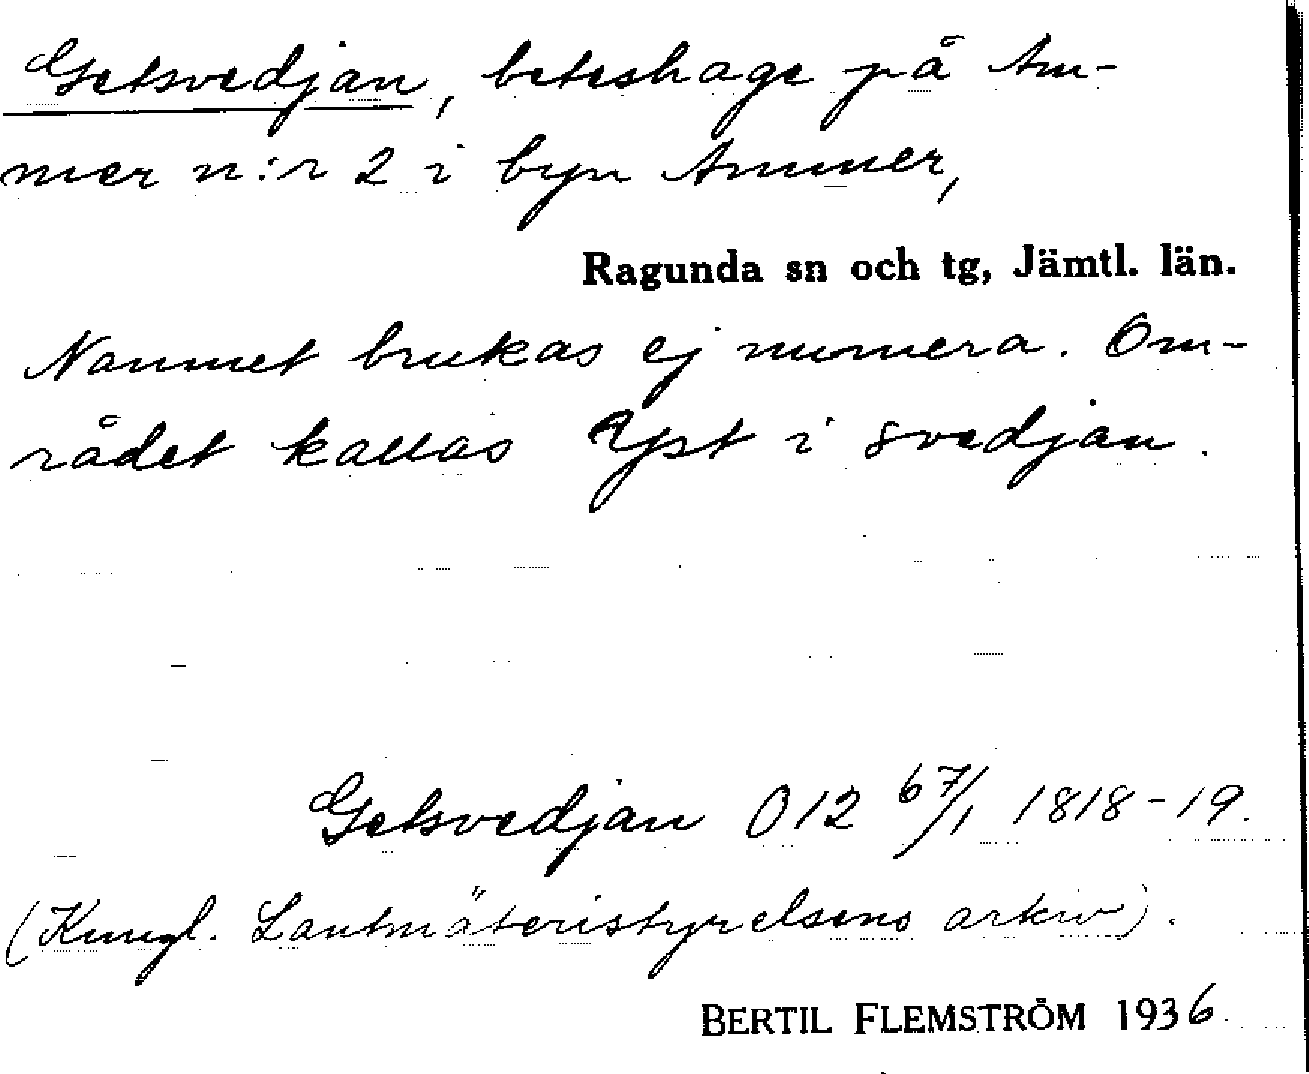 Getsvedjan, beteshage på Am-
mer n:r 2 i byn Ammer,
Ragunda sn och tg, Jämtl. län.
Namnet brukas ej numera. Om-
rådet kallas Yst i svedjan.
Getsvedjan O12 67/1 1818-19.
(Kungl. Lantmäteristyrelsens arkiv).
BERTIL FLEMSTRÖM 1936